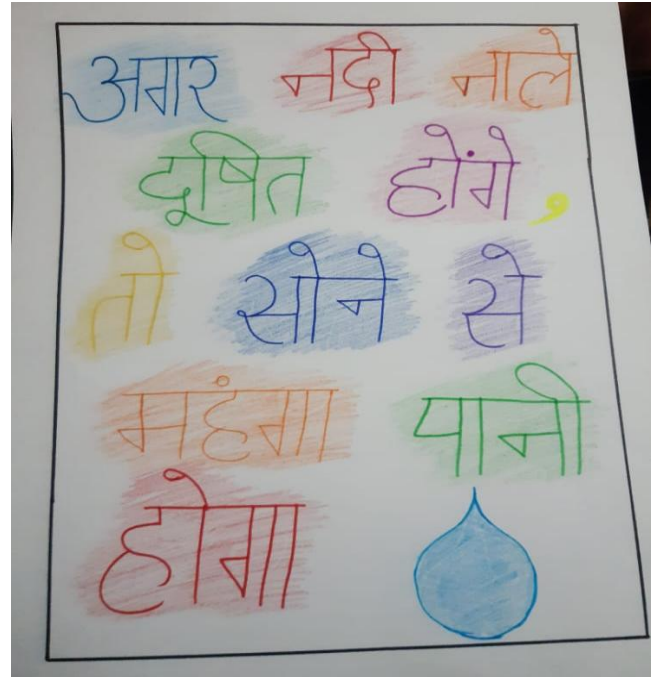 अगर नदी नाले
दूषित होंगे,
तो सोने से
महंगा पानी
होगा